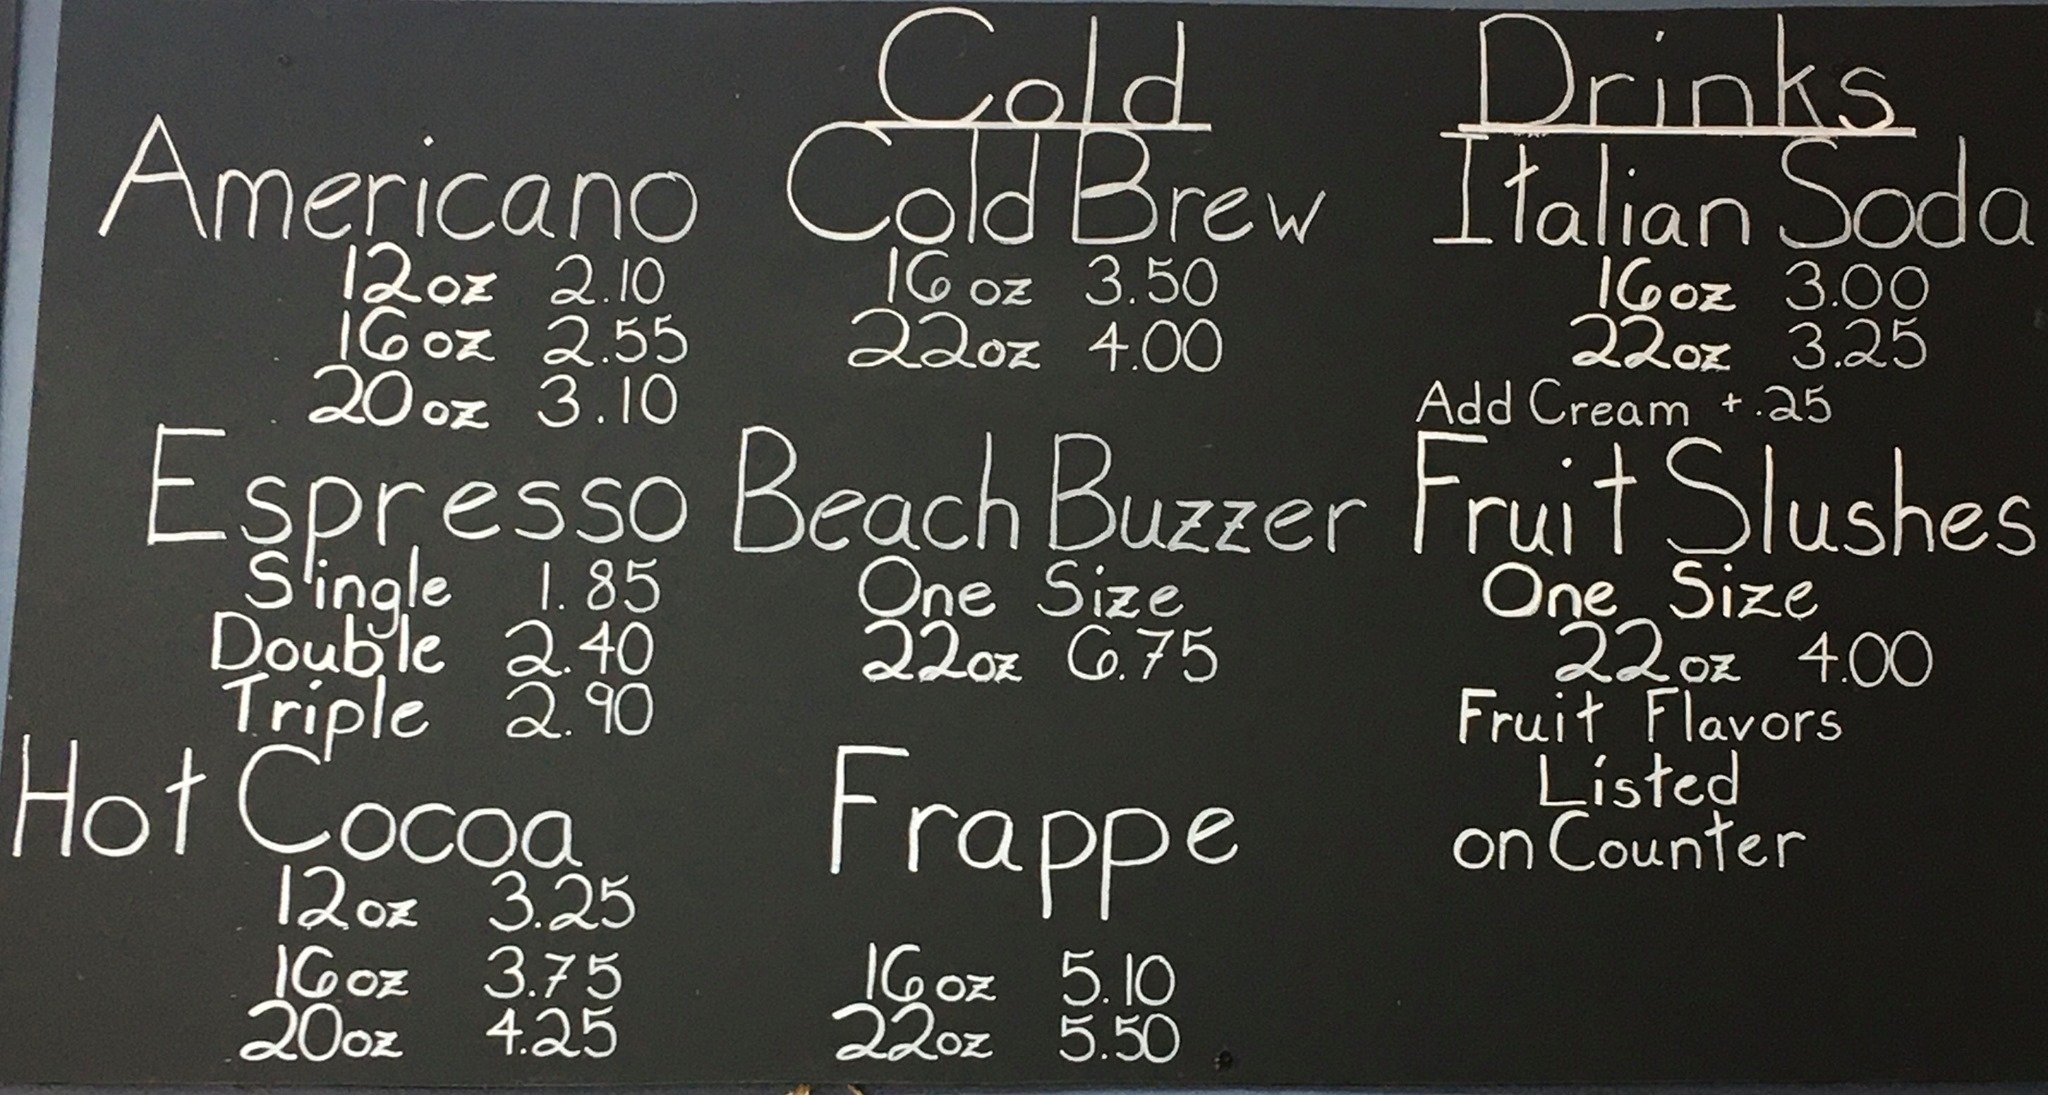 Americano
12oz 2.10
16oz 2.55
20oz 3.10
Espresso
Single 1.85
Double 2.40
Triple 2.90
Hot Cocoa
12oz 3.25
16oz 3.75
20oz 4.25
Cold Drinks
Cold Brew
16oz 3.50
22oz 4.00
Beach Buzzer
One Size
22oz 6.75
Frappe
16oz 5.10
22oz 5.50
Italian Soda
16oz 3.00
22oz 3.25
Add Cream +.25
Fruit Slushes
One Size
22oz 4.00
Fruit Flavors
Listed
on Counter